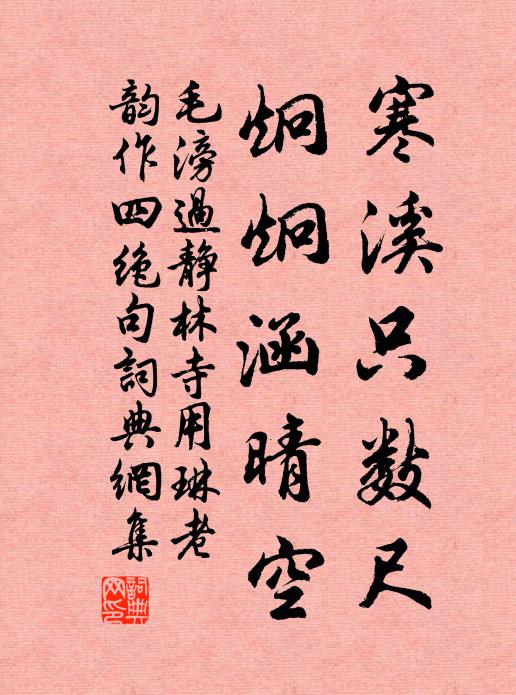 寒溪只数尺
炯炯涵晴空
毛滂過静林寺用琳老
韵作四绝句詞典網集
詞典網印